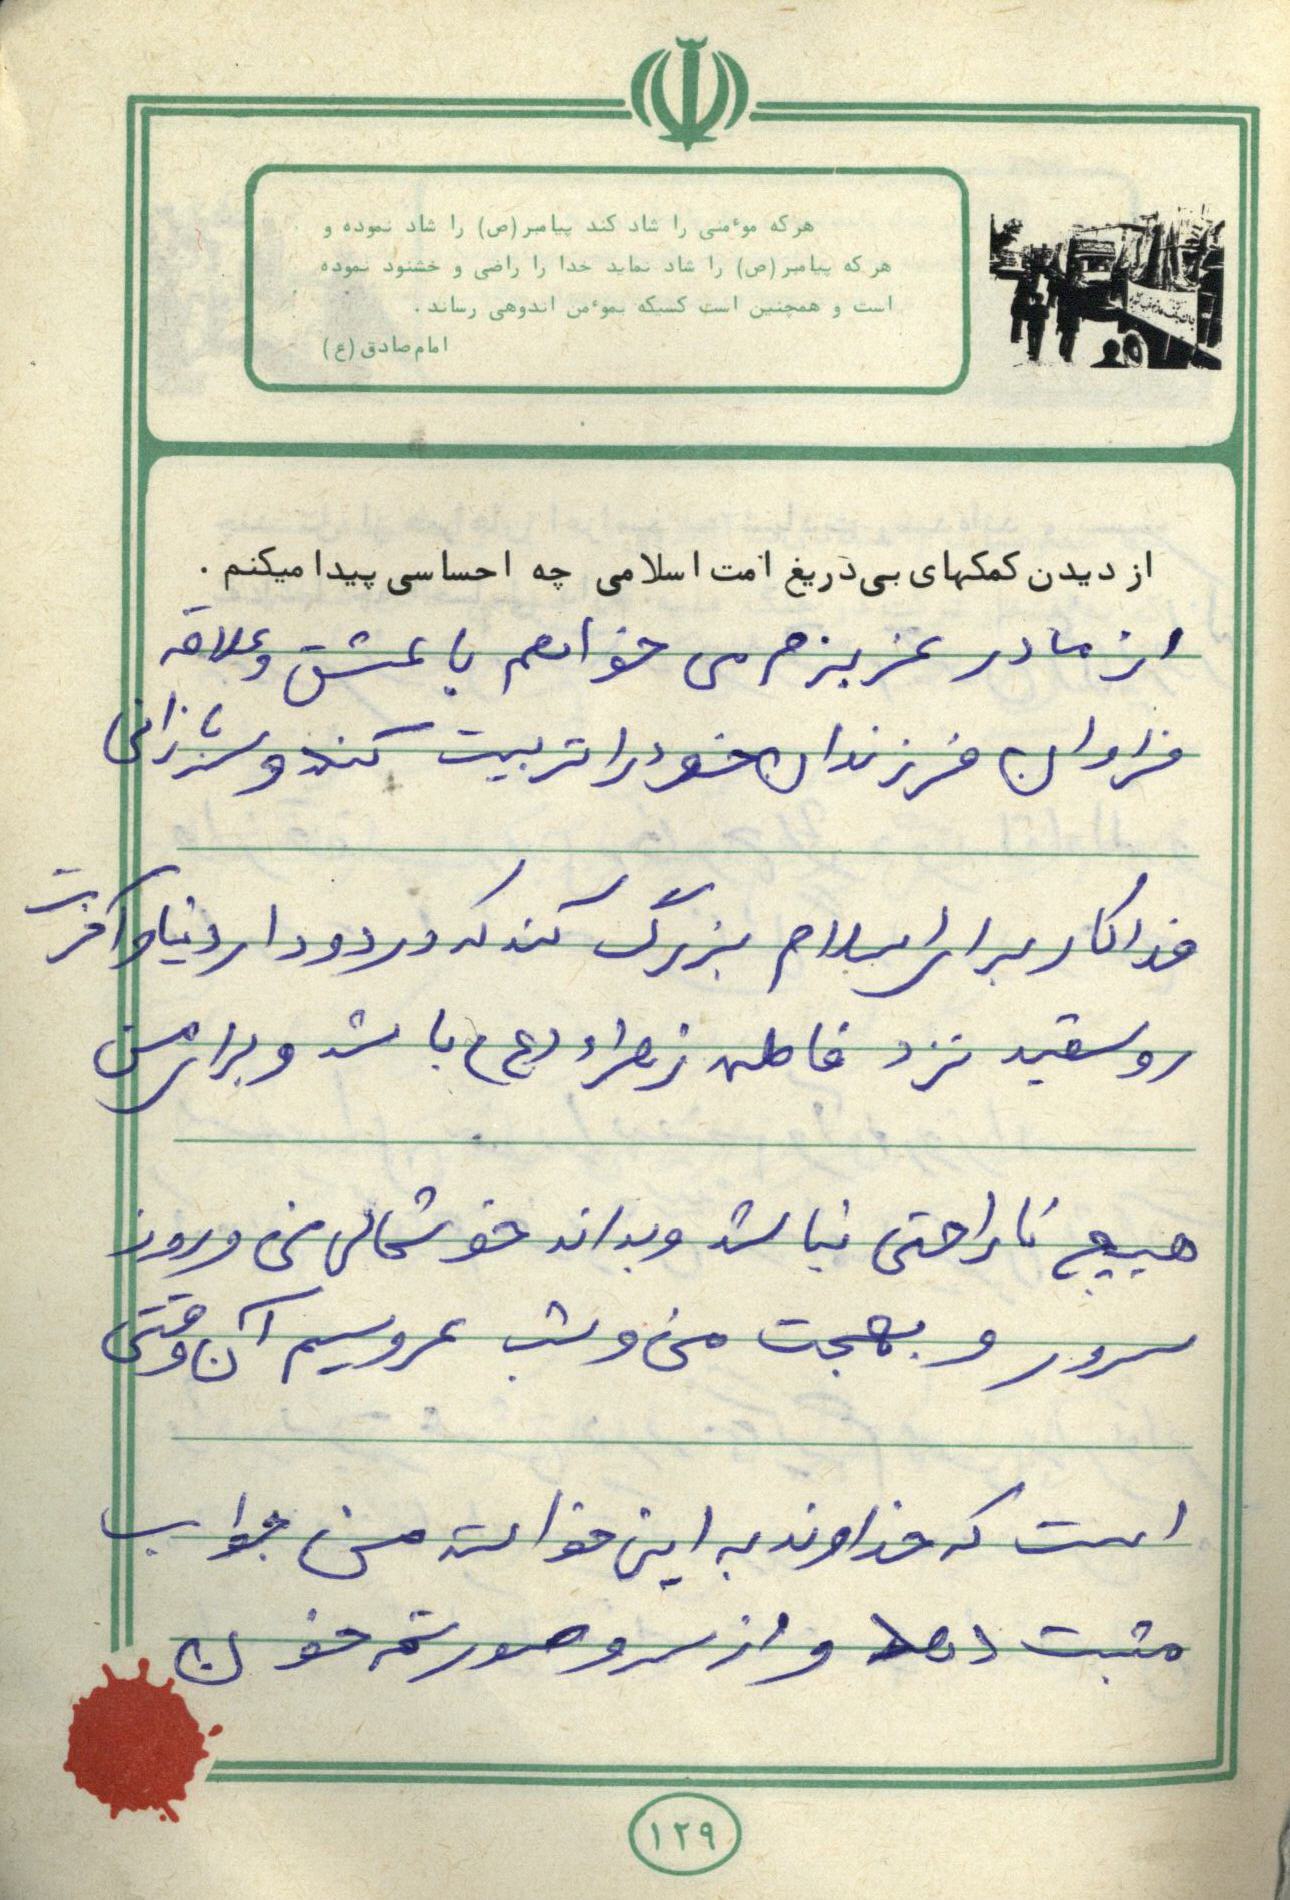 هرکه موءمنی را شاد کند پیامبر(ص) را شاد نموده و
هرکه پیامبر(ص) را شاد نماید خدا را راضی و خشنود نموده
است و همچنین است کسیکه بموءمن اندوهی رساند.
امام صادق (ع)
از دیدن کمکهای بی‌دریغ امت اسلامی چه احساسی پیدا میکنم.
از مادر عزیزم می خواهم با عشق و علاقه
فراوان فرزندان خود را تربیت کند و
فداکار برای اسلام بزرگ کند که در دو دار دنیا و آخرت
روسفید نزد فاطمه زهراء (ع) باشد و برای من
هیچ ناراحتی نباشد و بداند خوشحالی من و روز
سرور و بهجت من و شب عروسیم آن وقتی
است که خداوند به این خواسته من جواب
مثبت دهد و از سر و صورتم خون
۱۲۹